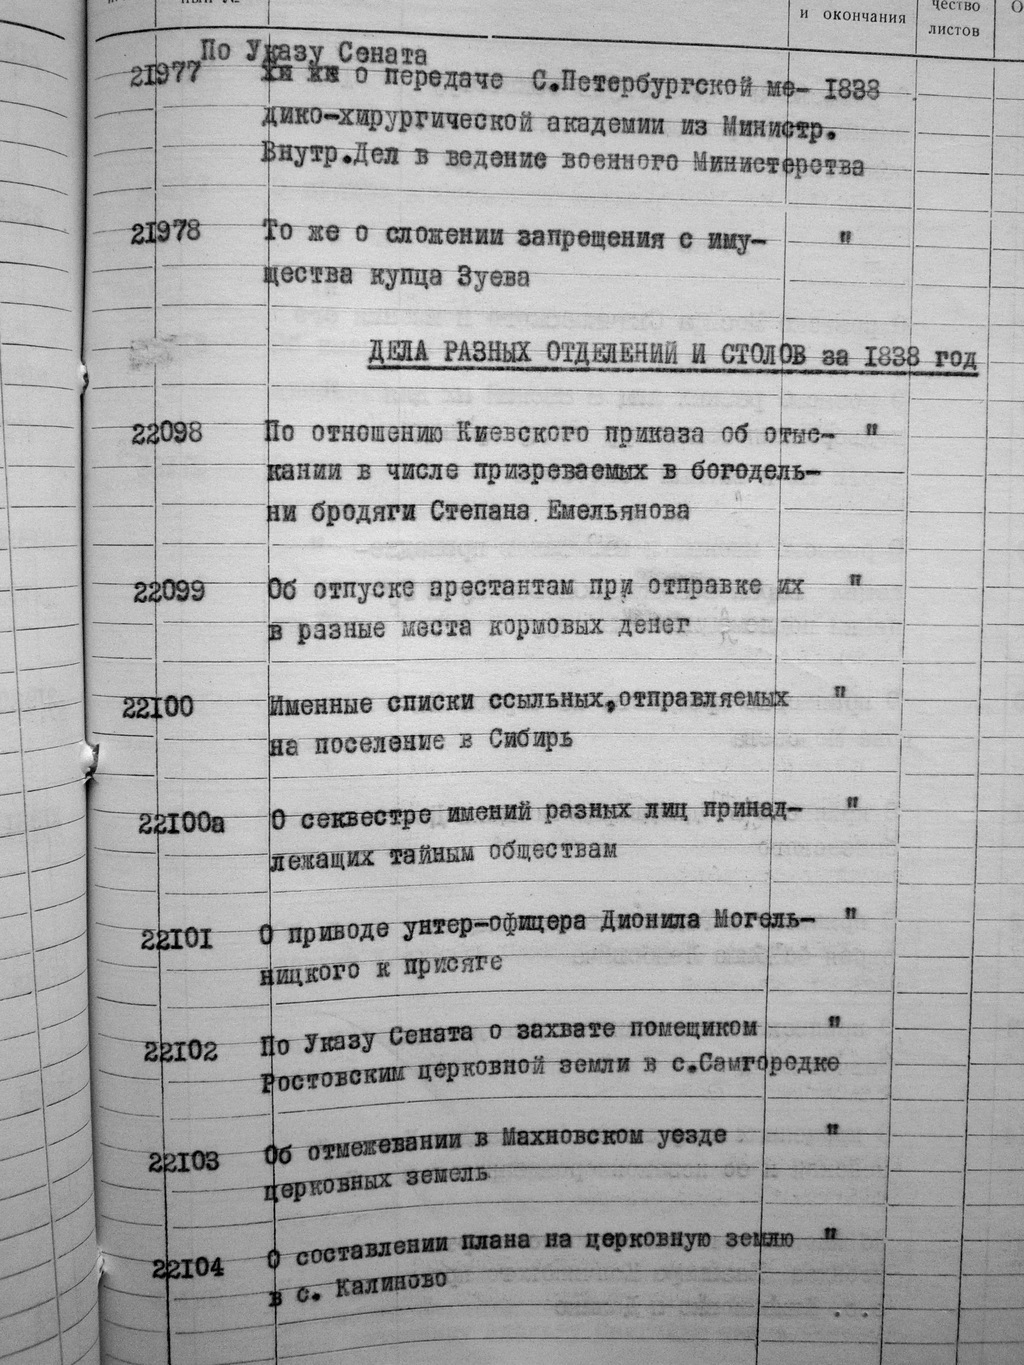 и окончания
чество
листов
По Указу Сената
21977 о передаче С.Петербургской ме- 1838
дико-хирургической академии из Министр.
Внутр.Дел в ведение военного Министерства
21978 То же о сложении запрещения с иму- "
щества купца Зуева
ДЕЛА РАЗНЫХ ОТДЕЛЕНИЙ И СТОЛОВ за 1838 год
22098 По отношению Киевского приказа об отыс- "
кании в числе призреваемых в богодель-
ни бродяги Степана Емельянова
22099 Об отпуске арестантам при отправке их "
в разные места кормовых денег
22100 Именные списки ссыльных,отправляемых "
на поселение в Сибирь
22100а О секвестре имений разных лиц принад- "
лежащих тайным обществам
22101 О приводе унтер-офицера Дионила Могель- "
ницкого к присяге
22102 По Указу Сената о захвате помещиком "
Ростовским церковной земли в с.Самгородке
22103 Об отмежевании в Махновском уезде "
церковных земель
22104 О составлении плана на церковную землю "
в с. Калиново